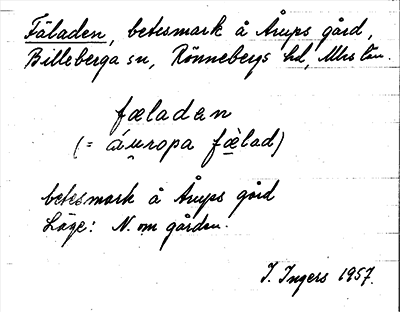 Fäladen, betesmark å Årups gård,
Billeberga sn, Rönnebergs hd, Mlhs län.
fæladan
(= áu̯ropa fæ̀lad)
betesmark å Årups gård
Läge: N. om gården.
I. Ingers 1957.